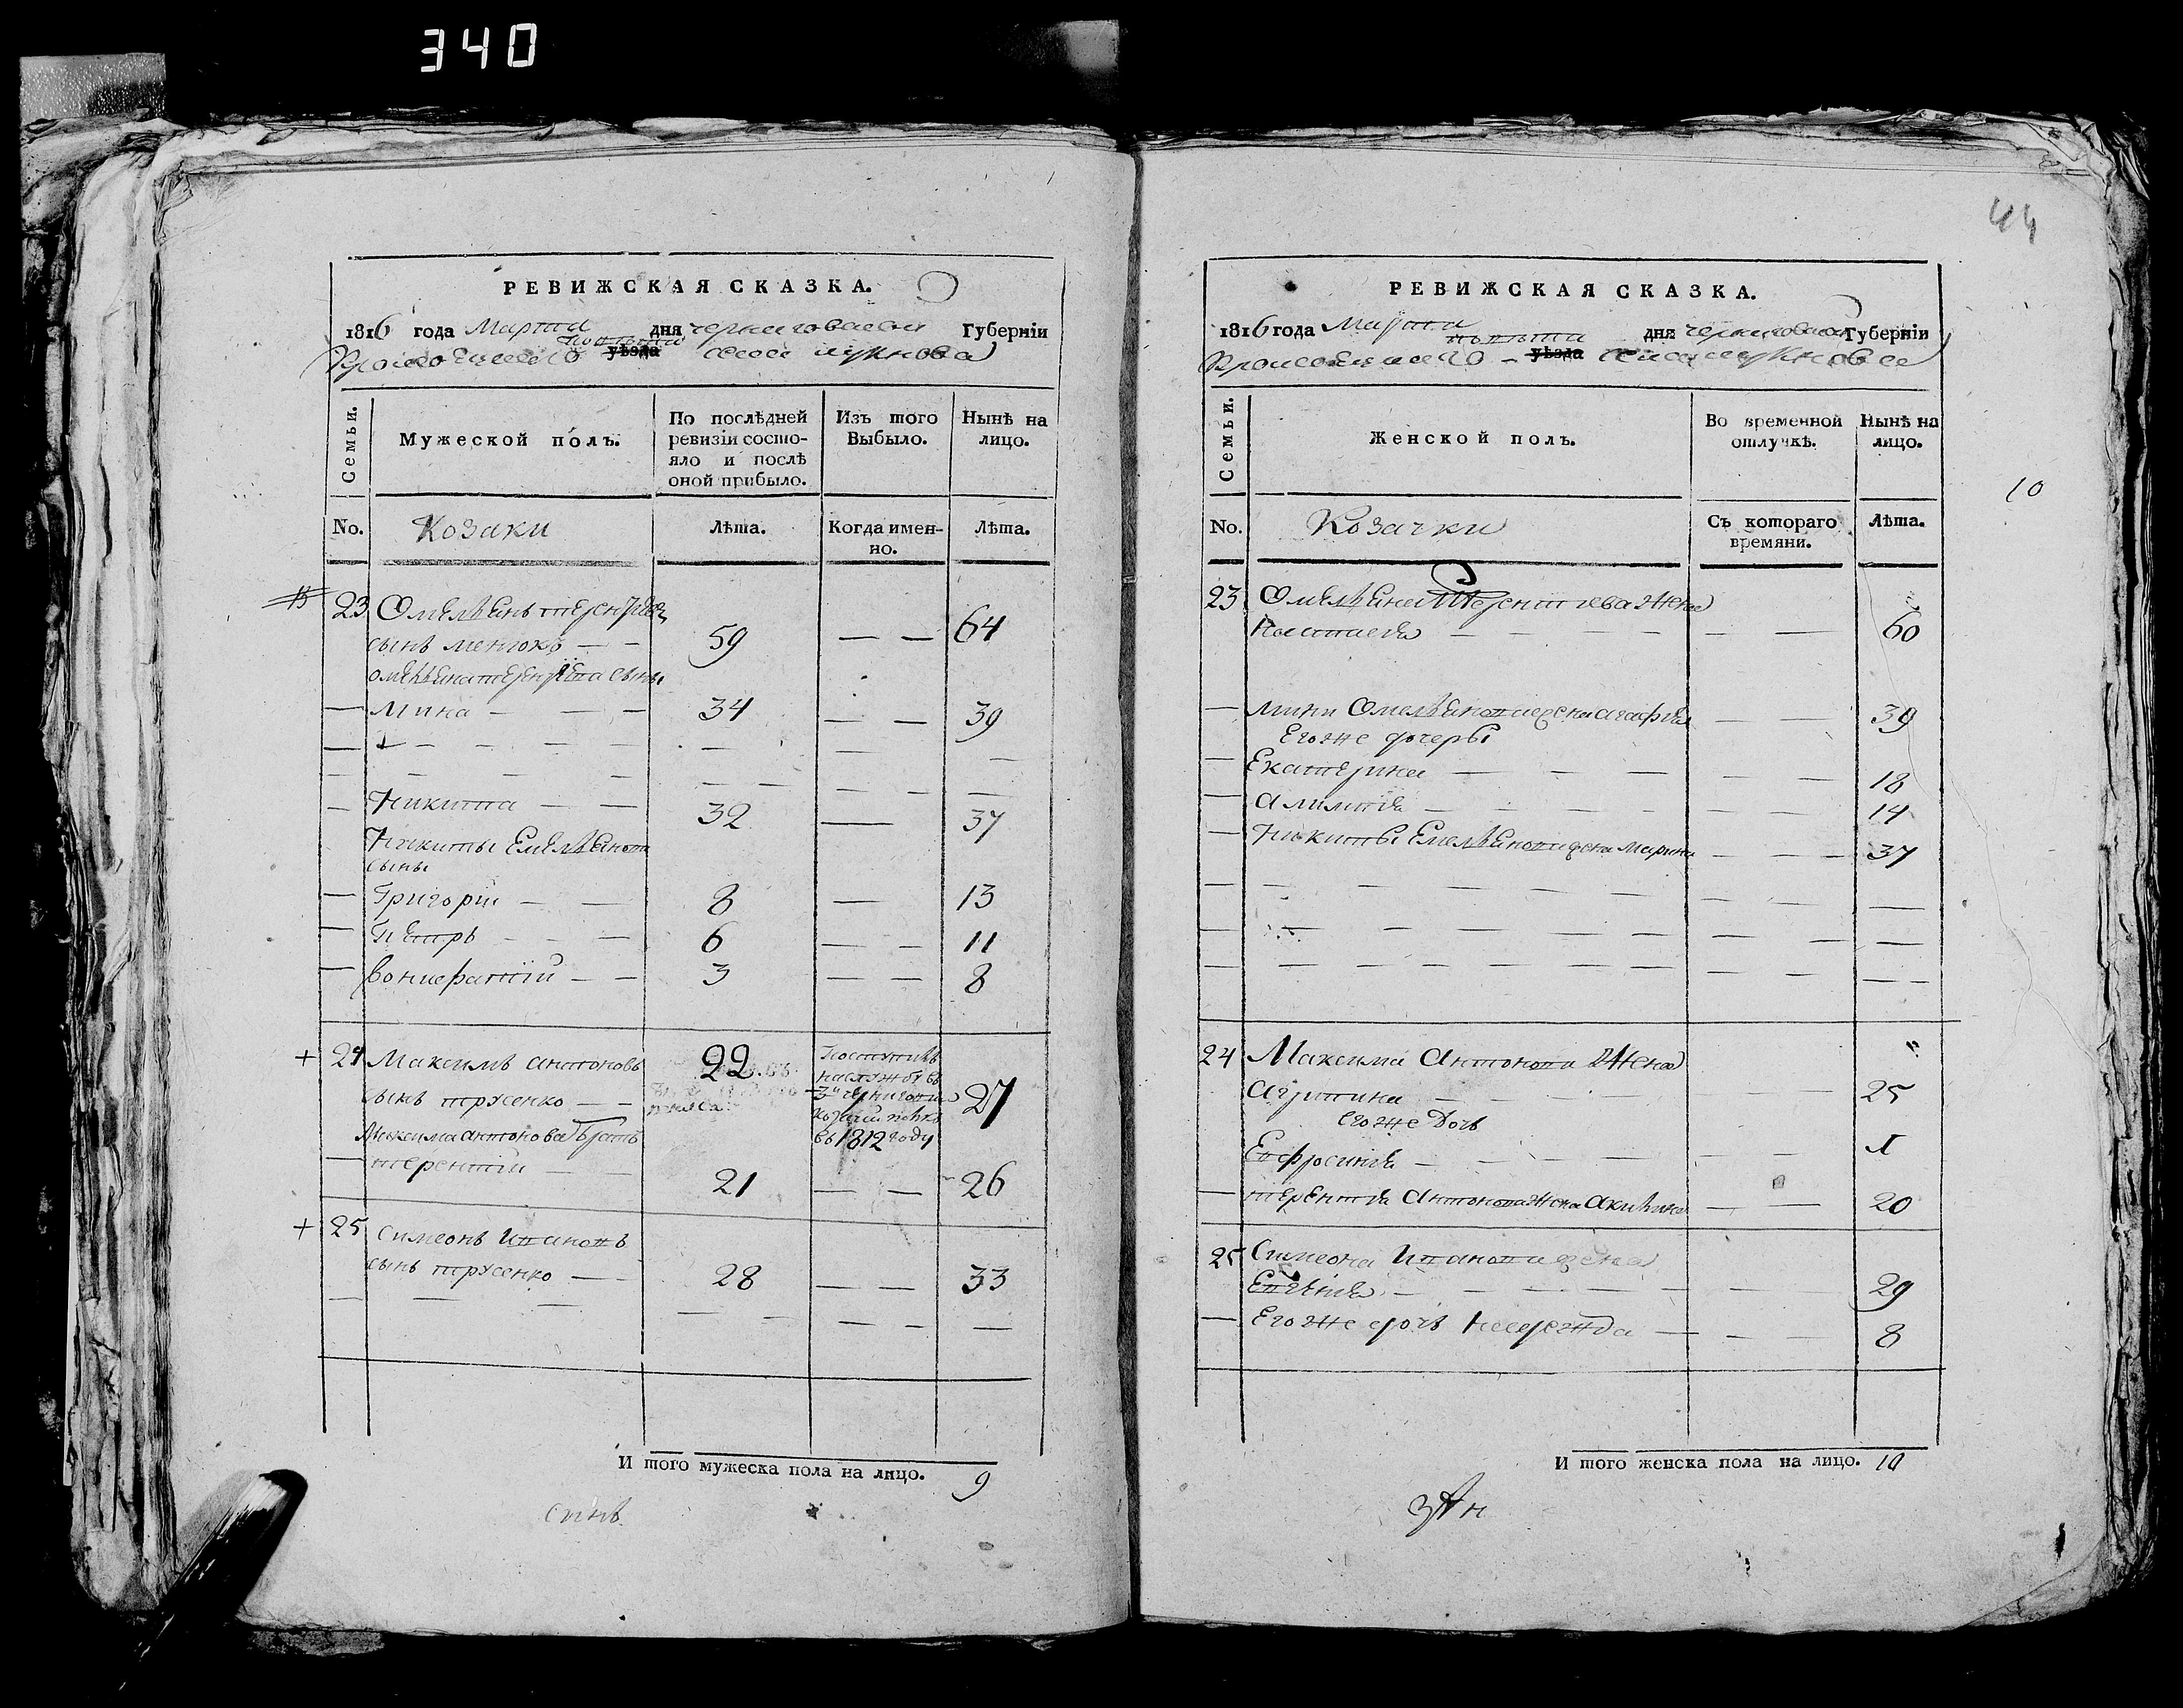 340
44
РЕВИЖСКАЯ СКАЗКА.
1816 года Марта дня черниговской Губернїи
повѣта
уѣзда села
Семьи.
Мужеской полъ.
По послѣдней ревизїи состо-
яло и послѣ
оной прибыло.
Изъ того
Выбыло.
Нынѣ на
лицо.
No.
Козаки
Лѣта.
Когда имен-
но.
Лѣта.
23 Омельянъ
сынъ Менюкъ — — 59 — — 64
сыны
— Мина — — — 34 — — 39
— Никита — — 32 — 37
Никиты Емельянова
сыны
— Григорїй — — 8 — 13
— Петръ — — — 6 — — 11
— — — 3 — — 8
+ 24 Максимъ Антоновъ
сынъ трусенко — — 22 27
въ 1812 году
Максима Антонова братъ
— терентїй — — 21 — — 26
+ 25 Симеонъ Ивановъ
сынъ трусенко — — 28 — — 33
И того мужеска пола на лицо. 9
РЕВИЖСКАЯ СКАЗКА.
1816 года Марта дня черниговской Губернїи
повѣта
уѣзда села
Семьи.
Женской полъ.
Во временной
отлучкѣ.
Нынѣ на
лицо.
10
No.
Козачки
Съ котораго
времяни.
Лѣта.
23 Омельяна Терентїева Жена
Настасїя — — — — — — 60
— Мини Омельянова жена Агафїя — — 39
Егоже дочеры
— Екатерина — — — — — 18
— — — — — — 14
— Никиты Емельянова жена Марина — — — 37
24 Максима Антонова Жена
Агрипина — — 25
егоже Дочь
Ефросинїя — — — — — — 1
— терентїя Антонова Жена Акилина — — 20
25 Симеона Иванова жена
Евгенїя — — — — — — 29
— Егоже дочь Надежда — — — — 8
И того женска пола на лицо. 10